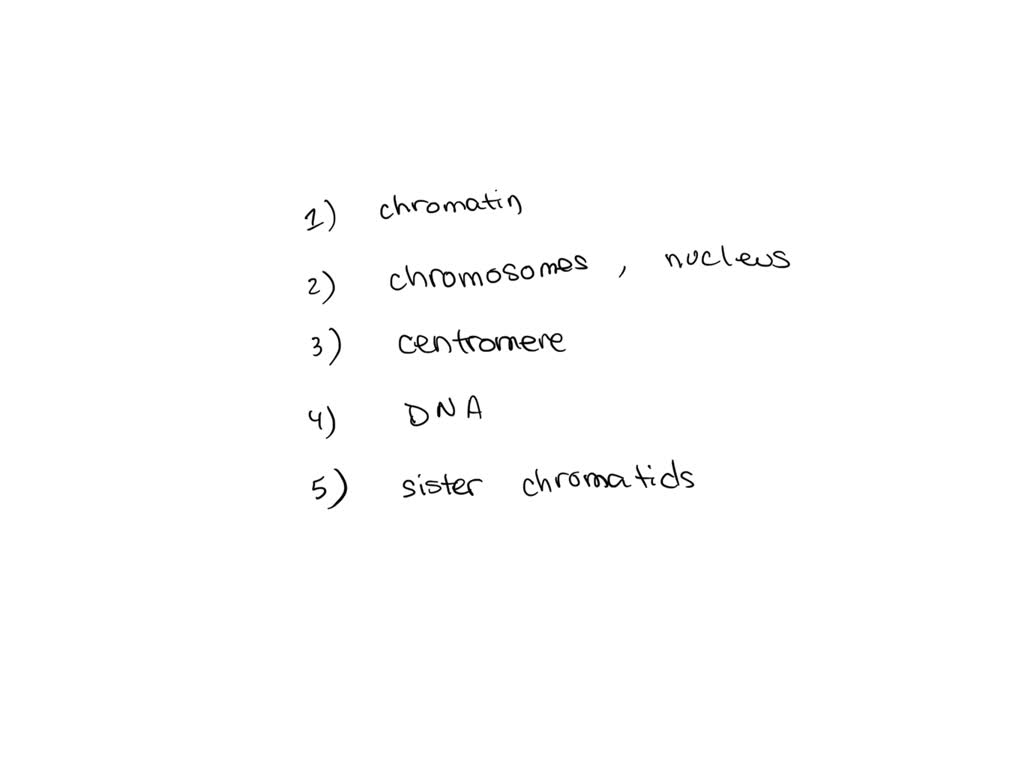 1) chromatin
2) chromosomes, nucleus
3) centromere
4) DNA
5) sister chromatids